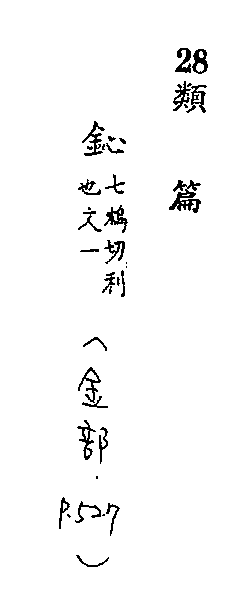 28類篇
鈊
七鴆切利
也文一
(金部.P.527)